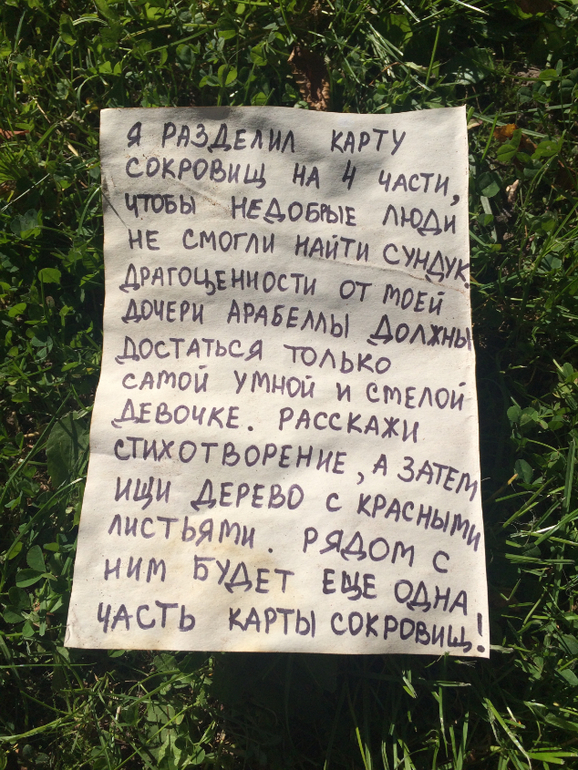 Я РАЗДЕЛИЛ КАРТУ
СОКРОВИЩ НА 4 ЧАСТИ,
ЧТОБЫ НЕДОБРЫЕ ЛЮДИ
НЕ СМОГЛИ НАЙТИ СУНДУК.
ДРАГОЦЕННОСТИ ОТ МОЕЙ
ДОЧЕРИ АРАБЕЛЛЫ ДОЛЖНЫ
ДОСТАТЬСЯ ТОЛЬКО
САМОЙ УМНОЙ И СМЕЛОЙ
ДЕВОЧКЕ. РАССКАЖИ
СТИХОТВОРЕНИЕ, А ЗАТЕМ
ИЩИ ДЕРЕВО С КРАСНЫМИ
ЛИСТЬЯМИ. РЯДОМ С
НИМ БУДЕТ ЕЩЕ ОДНА
ЧАСТЬ КАРТЫ СОКРОВИЩ!